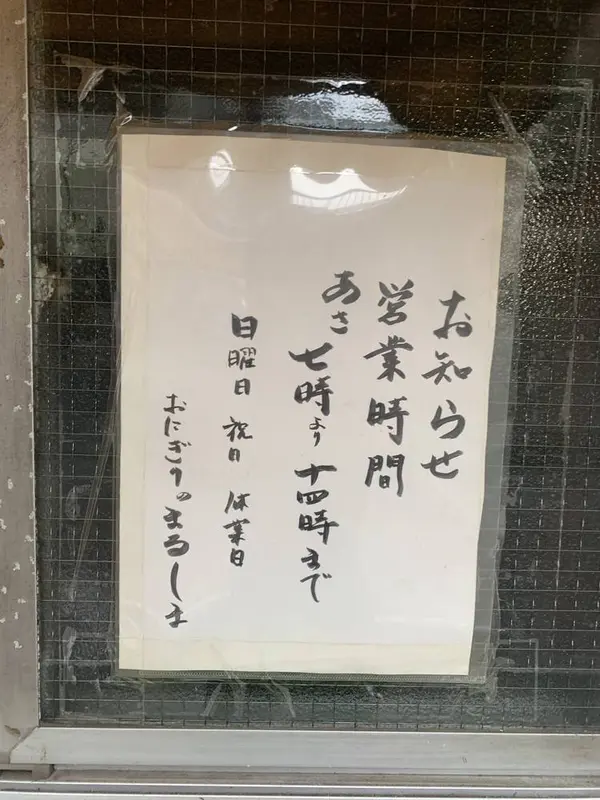 お知らせ
営業時間
あさ
七時より十四時まで
日曜日 祝日 休業日
おにぎりのまるしま